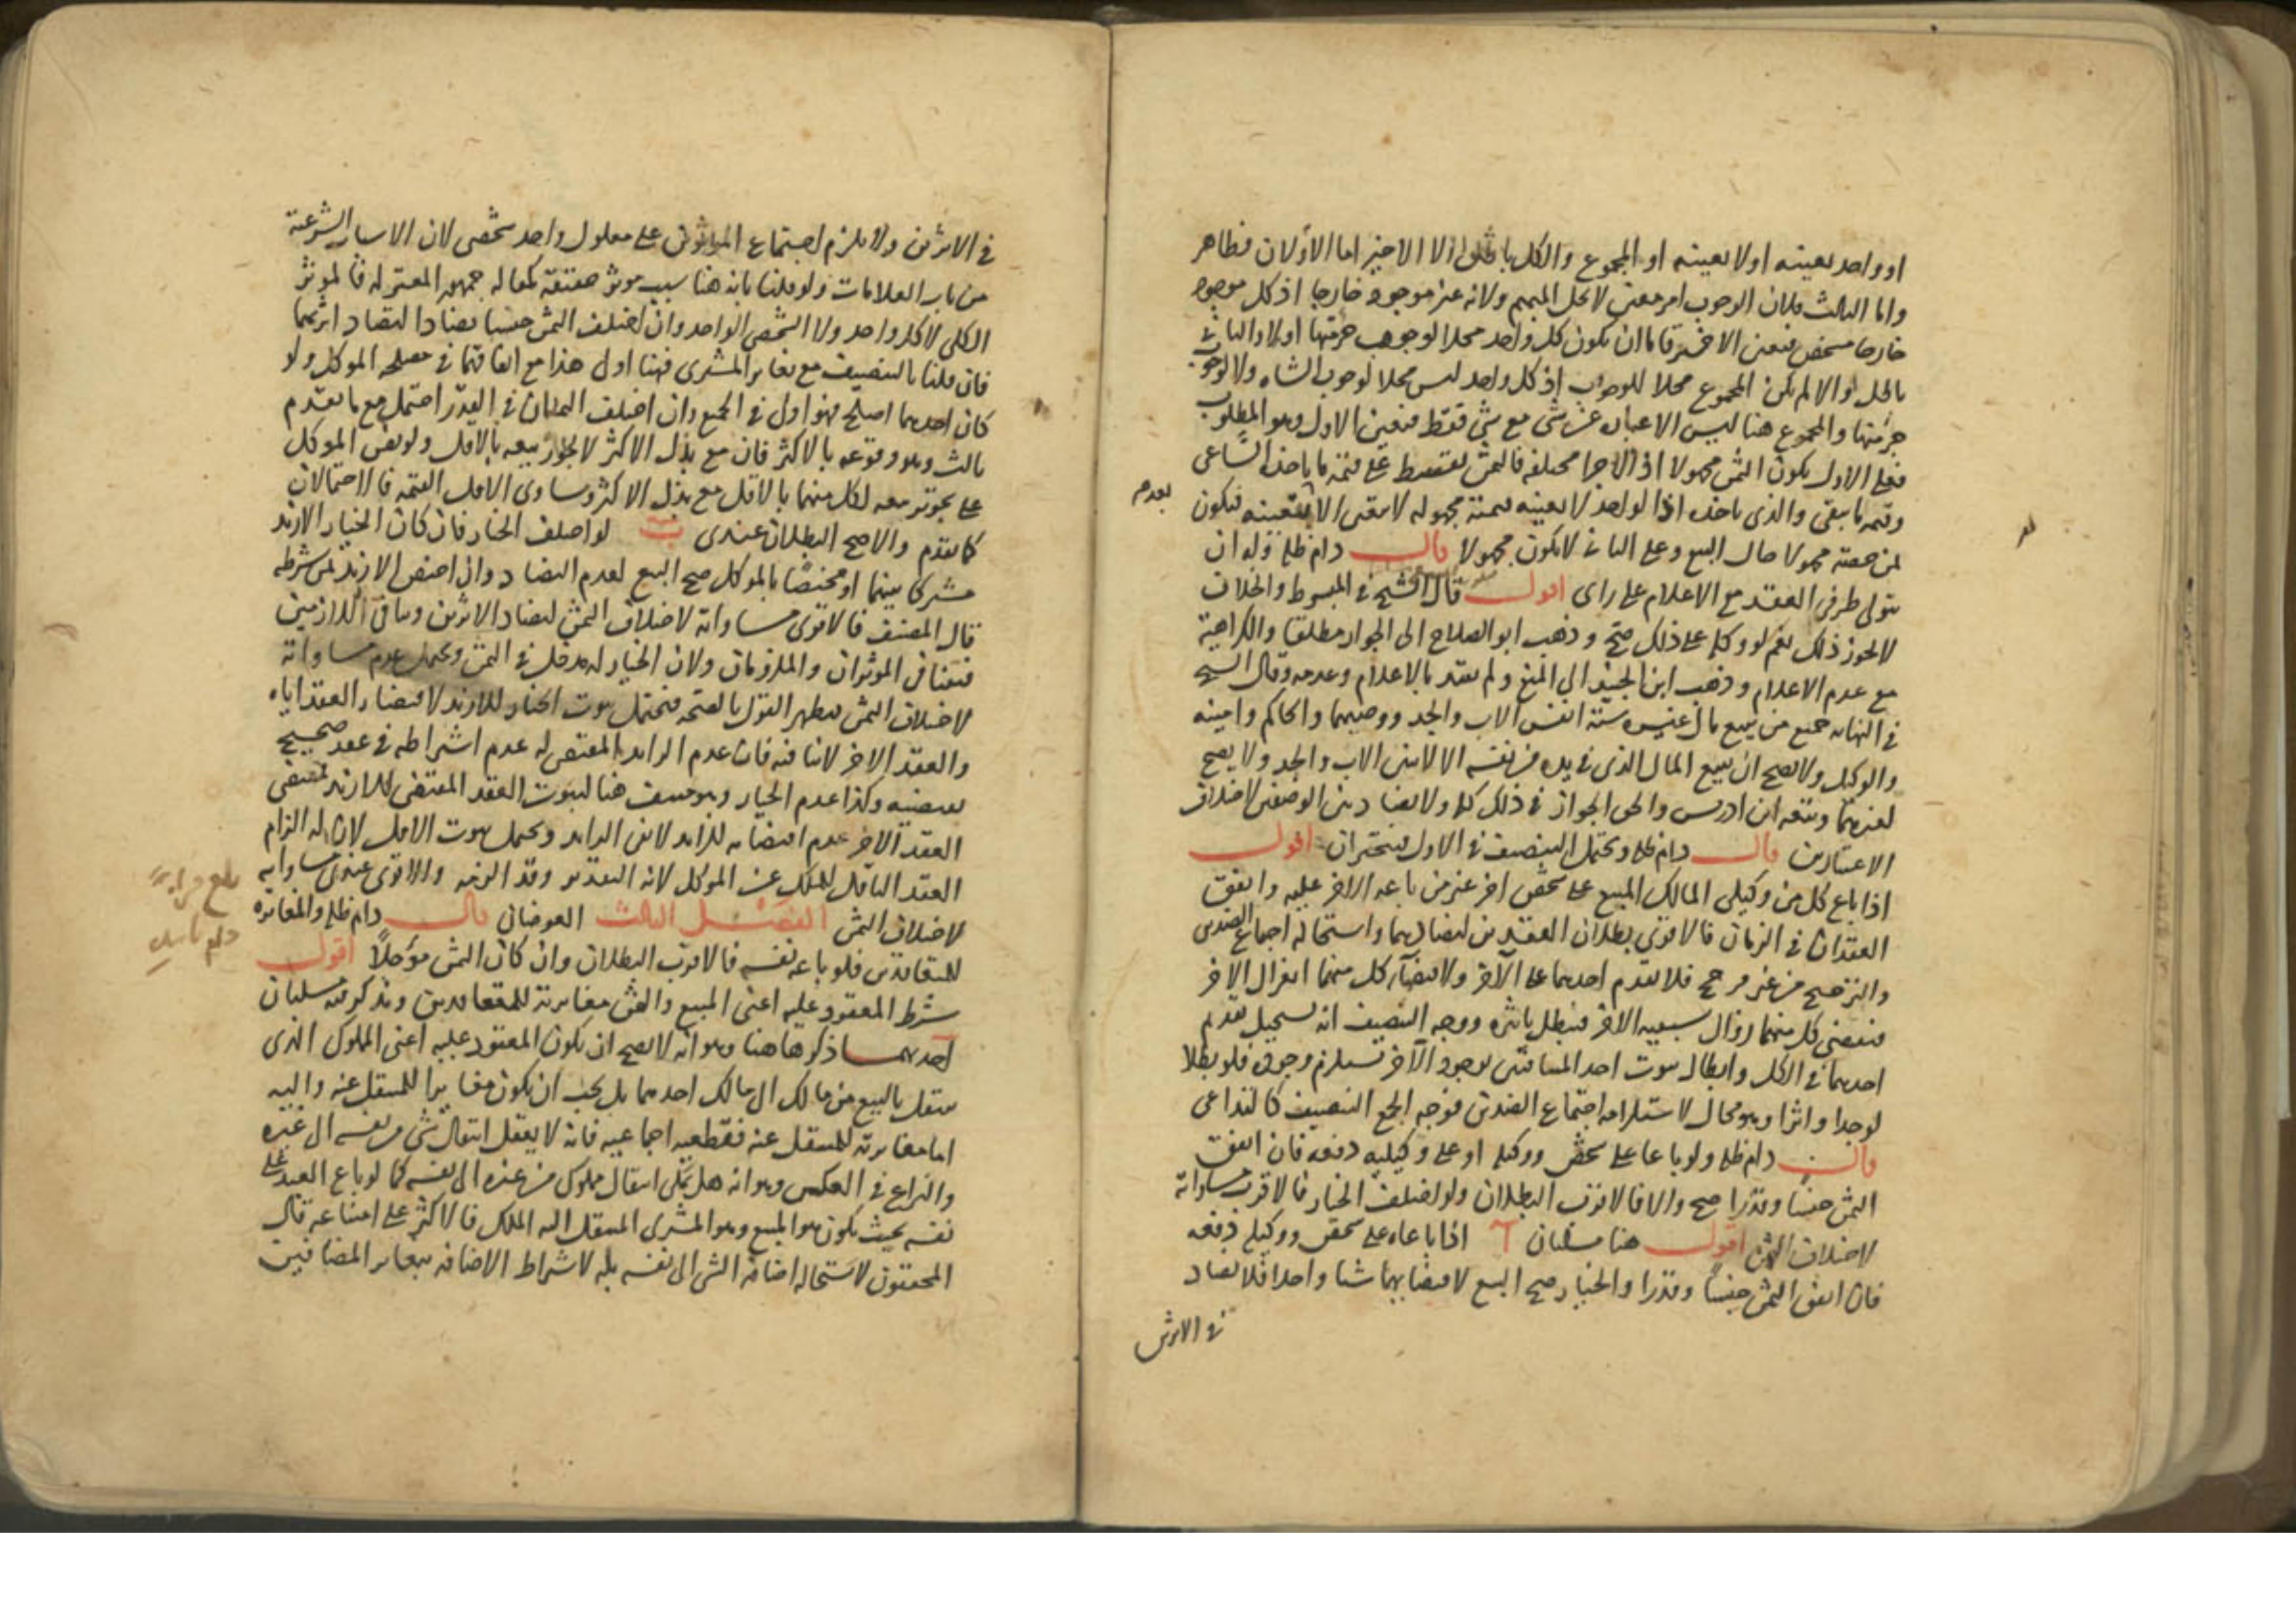 او واحد بعينه او لا بعينه او المجموع والكل باطل الا الاخير اما الاولان فظاهر
واما الثالث فلان الوجوب امر معين لا يحل المبهم ولانه غير موجود خارجا اذ كل موجود
خارجا مشخص فتعين الاخير فاما ان يكون كل واحد محلا لوجوب جزئها اولا والثاني
باطل والا لم يكن المجموع محلا للوجوب اذ كل واحد ليس محلا لوجوب الشاه ولا لوجوب
جزئها والمجموع هنا ليس الا عباره عن شي مع شي فقط فتعين الاول وهو المطلوب
فعلى الاول يكون الثمن مجهولا اذ الاجزا مختلفه فالثمن يقسط على قيمة ما ياخذه الساعي
وقيمه ما يبقى والذي ياخذه اذا الواحد لا بعينه قيمته مجهوله لا يتعين الا بتعينه فيكون
ثمن حصته مجهولا حال البيع وعلى الثاني لا يكون مجهولا قال دام ظله وله ان
يتولى طرفي العقد مع الاعلام على راى اقول قال الشيخ في المبسوط والخلاف
لا يجوز ذلك نعم لو وكله على ذلك صح وذهب ابو الصلاح الى الجواز مطلقا والكراهية
مع عدم الاعلام وذهب ابن الجنيد الى المنع ولم يقيد بالاعلام وعدمه وقال الشيخ
في النهايه جميع من يبيع مال غيره ستة انفس الاب والجد ووصيهما والحاكم وامينه
والوكيل ولا يصح ان يبيع المال الذي في يده من نفسه الا لاثنين الاب والجد ولا يصح
لغيرهما وتبعه ابن ادريس والحق الجواز في ذلك كله ولا تضاد بين الوصفين لاختلاف
الاعتبارين قال دام ظله ويحتمل التنصيف في الاول فيتخيران اقول
اذا باع كل من وكيلي المالك المبيع على شخص اخر غير من باعه الاخر عليه واتفق
العقدان في الزمان فالاقوى بطلان العقدين لتضادهما واستحالة اجتماع الضدين
والترجيح من غير مرجح فلا يقدم احدهما على الآخر ولاقتضاء كل منهما انعزال الاخر
فيقتضي كل منهما زوال سببيه الاخر فيبطل تاثيره ووجه التنصيف انه يستحيل تقديم
احدهما في الكل وابطال ثبوت احد المتنافيين لوجود الآخر يستلزم وجوده فلو بطلا
لوجدا واثرا وهو محال لاستلزامه اجتماع الضدين فوجه الجمع التنصيف كالتداعي
قال دام ظله ولو باعا على شخص ووكيله او على وكيليه دفعه فان اتفق
الثمن جنسا وقدرا صح والا فالاقرب البطلان ولو اختلف الخيار فالاقرب مساواته
لاختلاف الثمن اقول هنا مسئلتان آ اذا باعاه على شخص ووكيله دفعه
فان اتفق الثمن جنسا وقدرا والخيار صح البيع لاقتضائهما شيئا واحدا فلا تضاد
في الاثرين
في الاثرين ولا يلزم اجتماع المؤثرين على معلول واحد شخصى لان الاسباب الشرعية
من باب العلامات ولو قلنا بانه هنا سبب موثر حقيقة كمقاله جمهور المعتزله فالموثر
الكلي لا كل واحد ولا الشخصي الواحد وان اختلف الثمن جنسا تضادا لتضاد اثريهما
فان قلنا بالتنصيف مع تغاير المشترى فهنا اولى هذا مع اتفاقهما في مصلحه الموكل ولو
كان احدهما اصلح فهو اولى في الجميع وان اختلف الثمنان في القدر احتمل مع ما تقدم
ثالث وهو وقوعه بالاكثر فان مع بذل الاكثر لا يجوز بيعه بالاقل ولو نص الموكل
على تجويز بيعه لكل منهما بالاقل مع بذل الاكثر وساوى الاقل القيمه فالاحتمالان
كما تقدم والاصح البطلان عندى ب لو اختلف الخيار فان كان الخيار الازيد
مشتركا بينهما او مختصا بالموكل صح البيع لعدم التضاد وان اختص الازيد بمن شرطه
قال المصنف فالاقوى مساواته لاختلاف الثمن لتضاد الاثرين وتنافى اللازمين
فيتنافى الموثران والملزومان ولان الخيار له مدخل في الثمن ويحتمل عدم مساواته
لاختلاف الثمن فيظهر القول بالصحه فيحتمل ثبوت الخيار للازيد لاقتضاء العقد اياه
والعقد الاخر لا ينافيه فان عدم الزايد المقتضي له عدم اشتراطه في عقد صحيح
يقتضيه وكذا عدم الخيار وهو منتف هنا لثبوت العقد المقتضى للازيد فمقتضى
العقد الآخر عدم اقتضائه للزايد لا نفي الزايد ويحتمل ثبوت الاقل لان له الزام
العقد الناقل للملك عن الموكل لانه التقدير وقد الزمه والاقوى عندى مساواته
لاختلاف الثمن الفصل الثالث العوضان قال دام ظله والمغايره
للمتعاقدين فلو باعه نفسه فالاقرب البطلان وان كان الثمن مؤجلا اقول
شرط المعقود عليه اعنى المبيع والثمن مغايرته للمتعاقدين ونذكر فيه مسئلتان
احدهما ذكرها هنا وهو انه لا يصح ان يكون المعقود عليه اعنى المملوك الذى
ينتقل بالبيع من مالك الى مالك احدهما بل يجب ان يكون مغايرا للمنتقل عنه واليه
اما مغايرته للمنتقل عنه فقطعيه اجماعيه فانه لا يعقل انتقال شي من نفسه الى غيره
والنزاع في العكس وهو انه هل يمكن انتقال مملوك من غيره الى نفسه كما لو باع العبد على
نفسه بحيث يكون هو المبيع وهو المشترى المنتقل اليه الملك فالاكثر على امتناعه قال
المحققون لاستحاله اضافة الشي الى نفسه بله لاشتراط الاضافه بتغاير المضافين